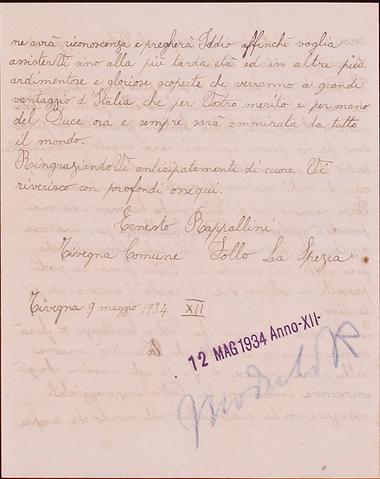 ne avrà riconoscenza e pregherà Iddio affinchè voglia
assisterVi sino alla più tarda età ed in altre più
ardimentose e gloriose scoperte che verranno a grande
vantaggio d'Italia che per Vostro merito e per mano
del Duce ora e sempre sarà ammirata da tutto
il mondo.
RingraziandoVi anticipatamente di cuore Vi
riverisco con profondi ossequi.
Ernesto Rappallini
Tivegna Comune Follo La Spezia
Tivegna 9 maggio 1934 XII
12 MAG 1934 Anno-XII-